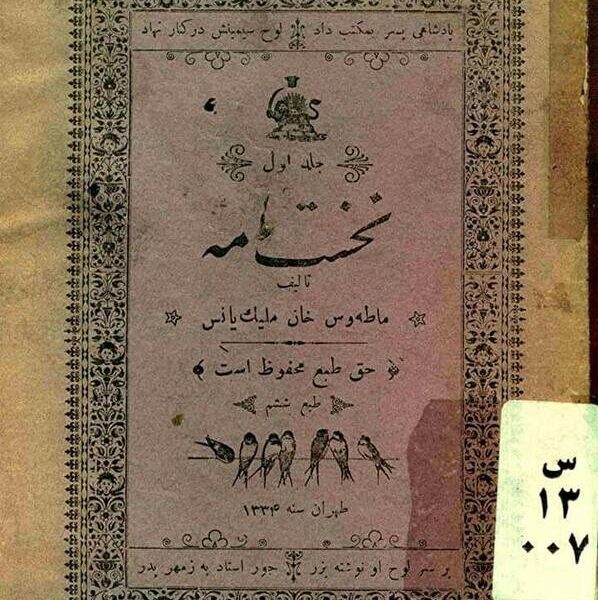 پادشاهی پسر بمکتب داد لوح سیمیناش در کنار نهاد
جلد اول
نخستنامه
تالیف
ماطه‌وس خان ملیك یانس
حق طبع محفوظ است
طبع ششم
طهران سنه ۱۳۳۴
بر سر لوح او نوشته بزر جور استاد به زمهر پدر
س
۱۳
۰۰۷